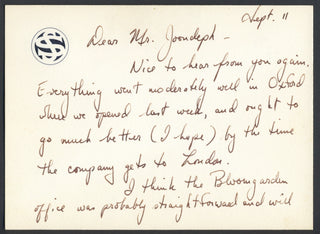 Sept. 11
Dear Mr. Joondeph -
Nice to hear from you again.
Everything went moderately well in Oxford
when we opened last week, and ought to
go much better (I hope) by the time
the company gets to London.
I think the Bloomgarden
office was probably straightforward and will